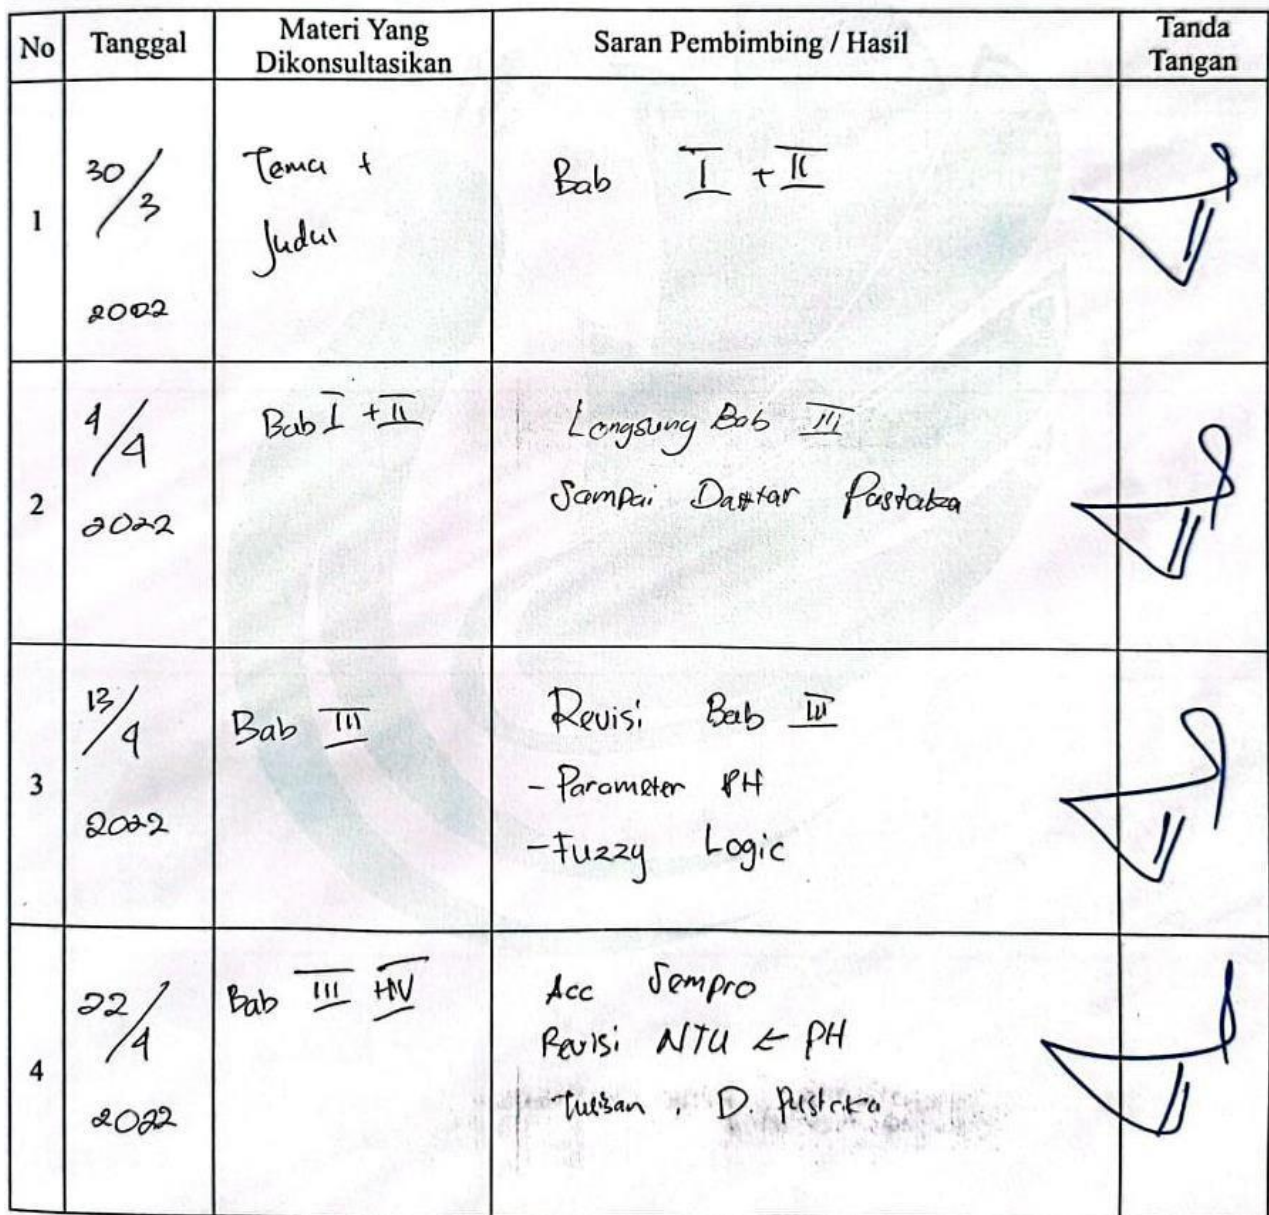 No Tanggal Materi Yang Dikonsultasikan Saran Pembimbing / Hasil Tanda Tangan
1
30/3
2022
Tema +
Judul
Bab I + II
2
4/4
2022
Bab I + II
Langsung Bab III
Sampai Daftar Pustaka
3
13/4
2022
Bab III
Revisi Bab III
- Parameter PH
- Fuzzy Logic
4
22/4
2022
Bab III + IV
Acc Sempro
Revisi NTU & PH
Tulisan , D. Pustaka